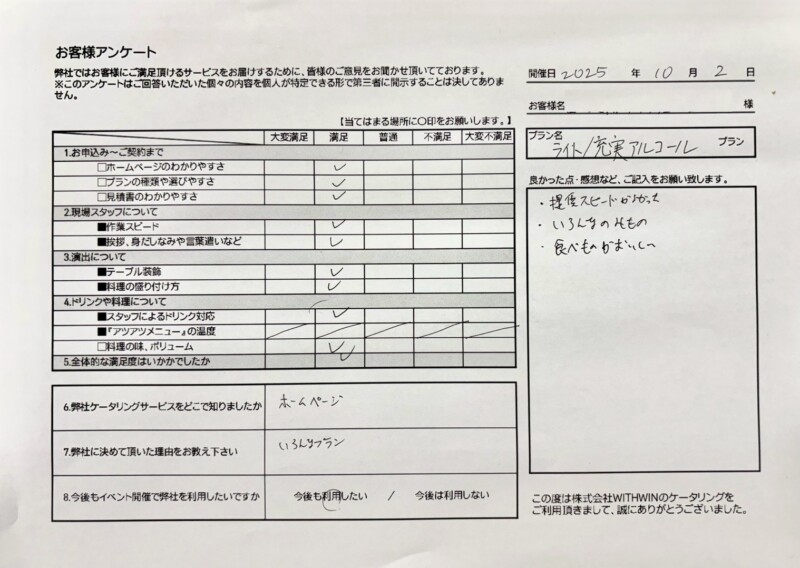 お客様アンケート
弊社ではお客様にご満足頂けるサービスをお届けするために、皆様のご意見をお聞かせ頂いております。
※このアンケートはご回答いただいた個々の内容を個人が特定できる形で第三者に開示することは決してありません。
【当てはまる場所に〇印をお願いします。】
大変満足 満足 普通 不満足 大変不満足
1.お申込み～ご契約まで
□ホームページのわかりやすさ ✓
□プランの種類や選びやすさ ✓
□見積書のわかりやすさ ✓
2.現場スタッフについて
■作業スピード ✓
■挨拶、身だしなみや言葉遣いなど ✓
3.演出について
■テーブル装飾 ✓
■料理の盛り付け方 ✓
4.ドリンクや料理について
■スタッフによるドリンク対応 ✓
■『アツアツメニュー』の温度
□料理の味、ボリューム ✓
5.全体的な満足度はいかかでしたか ✓
6.弊社ケータリングサービスをどこで知りましたか ホームページ
7.弊社に決めて頂いた理由をお教え下さい いろんなプラン
8.今後もイベント開催で弊社を利用したいですか 今後も利用したい / 今後は利用しない
開催日 2025 年 10 月 2 日
お客様名 様
プラン名
ライト/充実アルコール プラン
良かった点・感想など、ご記入をお願い致します。
・提供スピード
・いろんなのみもの
・食べものがおいしい
この度は株式会社WITHWINのケータリングを
ご利用頂きまして、誠にありがとうございました。